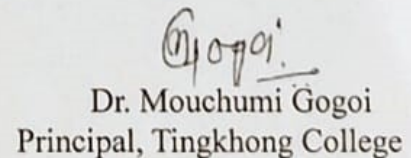 Gogoi
Dr. Mouchumi Gogoi
Principal, Tingkhong College